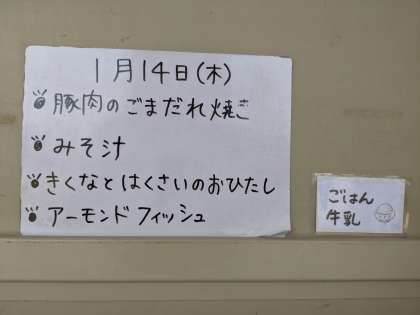 1月14日(木)
豚肉のごまだれ焼き
みそ汁
きくなとはくさいのおひたし
アーモンドフィッシュ
ごはん
牛乳